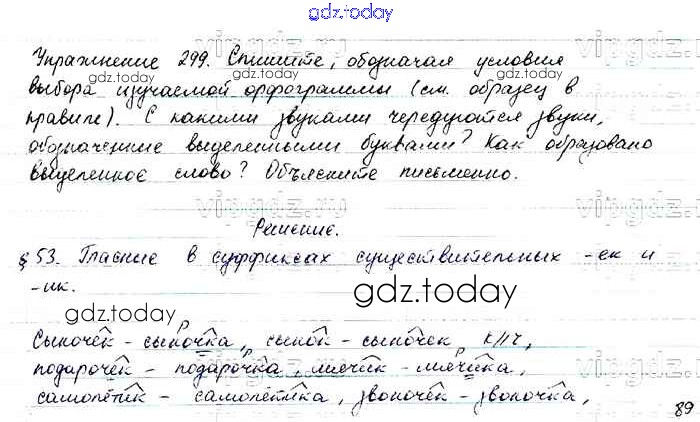 gdz.today
Упражнение 299. Спишите, обозначая условия
выбора изучаемой орфограммы (см. образец в
правиле). С какими звуками чередуются звуки,
обозначенные выделенными буквами? Как образовано
выделенное слово? Объясните письменно.
Решение.
§ 53. Гласные в суффиксах существительных -ек и
-ик.
Сыночек - сыночка, сынок - сыночек, к//ч,
подарочек - подарочка, мячик - мячика,
самолётик - самолётика, звоночек - звоночка,
89
gdz.today
gdz.today
gdz.today
gdz.today
gdz.today
gdz.today
vipgdz.ru
vipgdz.ru
vipgdz.ru
vipgdz.ru